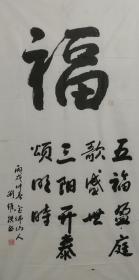 福
五福盈庭
歌盛世
三阳开泰
颂明时
丙戌 金佛山人